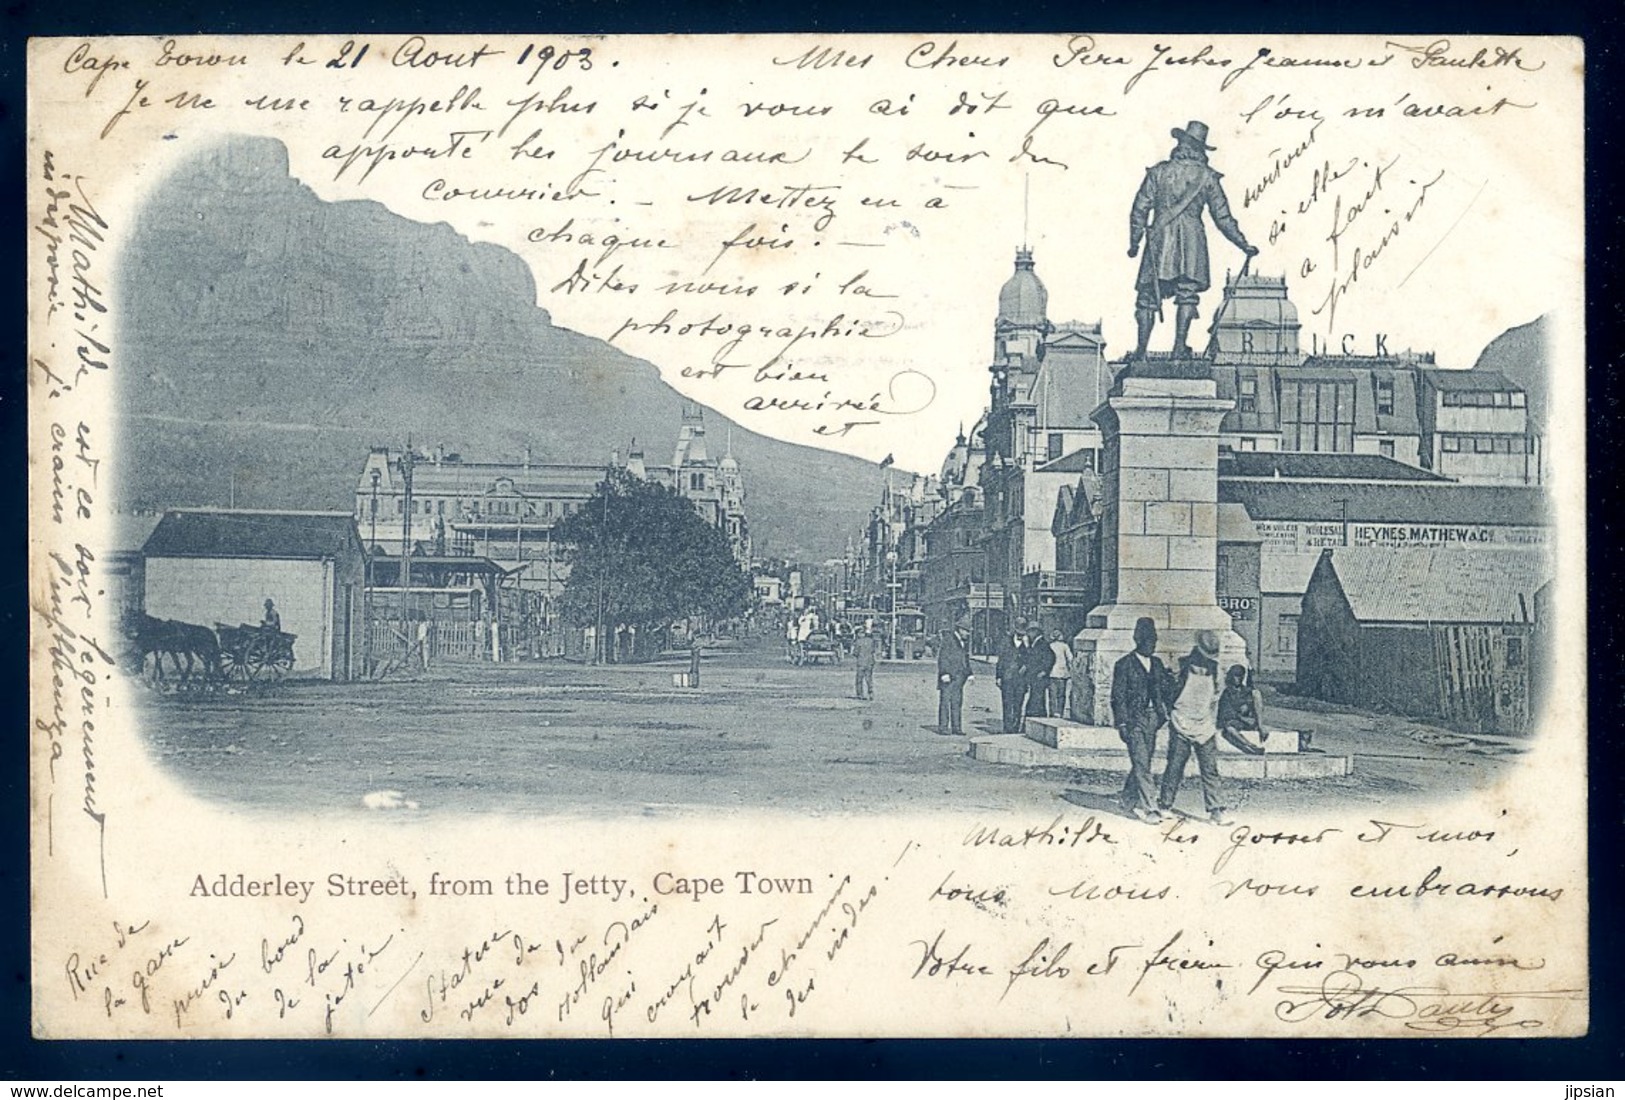 Cape Town le 21 Aout 1903.
Mes Chers Pere Jules Jeanne et Paulette
Je ne me rappelle plus si je vous ai dit que l'on m'avait
apporté les journaux le soir du
courrier. - Mettez en à
chaque fois. -
Dites nous si la
photographie
est bien
arrivée
et
surtout
si elle
a fait
plaisir
Mathilde est ce soir légèrement
indisposée. je crains l'influenza
B CK
WHOLESALE
& RETAIL
HEYNES, MATHEW & Co.
BROS
Adderley Street, from the Jetty, Cape Town
Rue de
la gare
prise
du bord
de la
jetée.
Statue
vue de
dos du
Hollandais
qui
croyait
trouver
le chemin
des indes!
Mathilde les gosses et moi,
tous nous vous embrassons
Votre fils et frère qui vous aime
jipsian